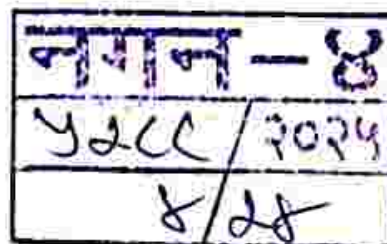 नगन - ४
५२८८/२०२५
४/२४